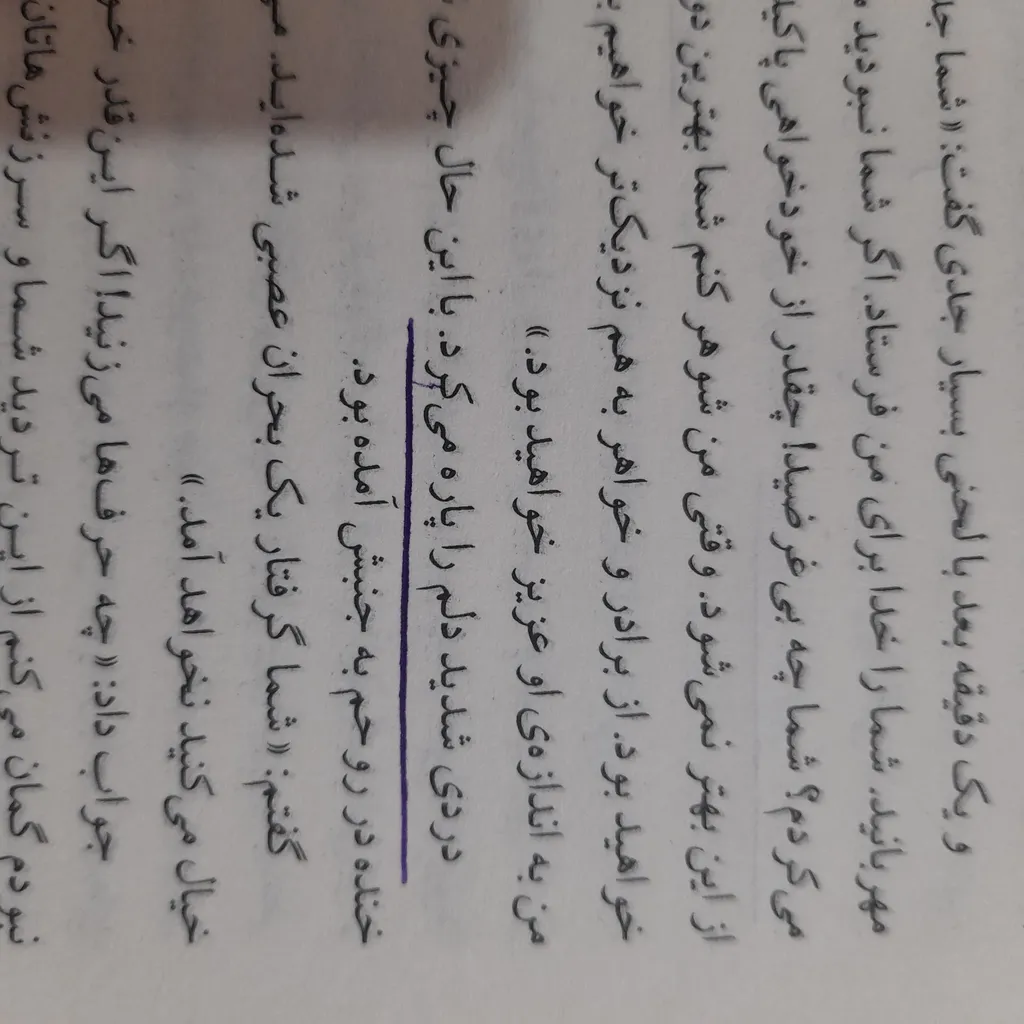 و یک دقیقه بعد با لحنی بسیار جدی گفت: «شما
مهربانید. شما را خدا برای من فرستاد. اگر شما نبودید
می‌کردم؟ شما چه بی‌غرضید! چقدر از خودخواهی
از این بهتر نمی‌شود. وقتی من شوهر کنم شما بهترین
خواهید بود. از برادر و خواهر به هم نزدیک‌تر خواهیم
من به اندازه‌ی او عزیز خواهید بود.»
دردی شدید دلم را پاره می‌کرد. با این حال چیزی
خنده در روحم به جنبش آمده بود.
گفتم: «شما گرفتار یک بحران عصبی شده‌اید.
خیال می‌کنید نخواهد آمد.»
جواب داد: «چه حرف‌ها می‌زنید! اگر این‌قدر
نبودم گمان می‌کنم از این تردید شما و سرزنش‌هاتان